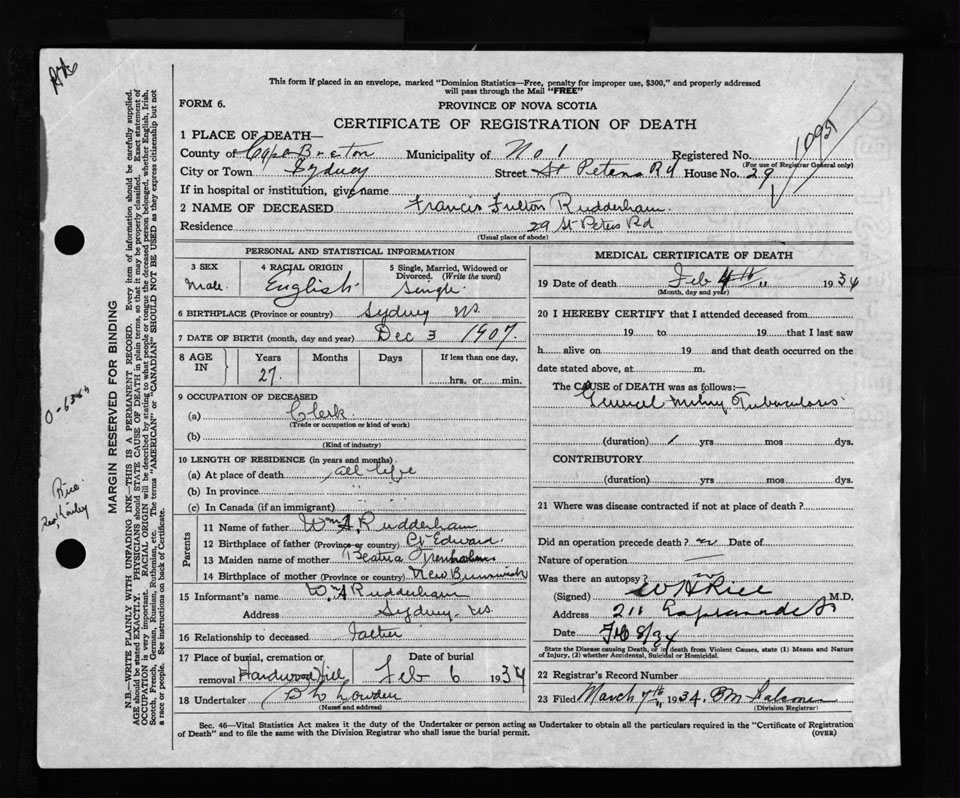 This form if placed in an envelope, marked "Dominion Statistics—Free, penalty for improper use, $300," and properly addressed
will pass through the Mail "FREE"
FORM 6. PROVINCE OF NOVA SCOTIA
CERTIFICATE OF REGISTRATION OF DEATH
1 PLACE OF DEATH—
County of Cape Breton Municipality of No 1 Registered No.
(For use of Registrar General only)
City or Town Sydney Street St Peters Rd House No. 29
If in hospital or institution, give name
2 NAME OF DECEASED Francis Fulton Rudderham
Residence 29 St Peters Rd
(Usual place of abode)
PERSONAL AND STATISTICAL INFORMATION
3 SEX 4 RACIAL ORIGIN 5 Single, Married, Widowed or
Divorced. (Write the word)
Male English Single
6 BIRTHPLACE (Province or country) Sydney NS
7 DATE OF BIRTH (month, day and year) Dec 3 1907
8 AGE IN Years Months Days If less than one day,
27 hrs. or min.
9 OCCUPATION OF DECEASED
(a) Clerk
(Trade or occupation or kind of work)
(b)
(Kind of industry)
10 LENGTH OF RESIDENCE (in years and months)
(a) At place of death all life
(b) In province
(c) In Canada (if an immigrant)
Parents
11 Name of father Wm A. Rudderham
12 Birthplace of father (Province or country) Pt Edward
13 Maiden name of mother Beatrice Trenholm
14 Birthplace of mother (Province or country) New Brunswick
15 Informant's name Wm A Rudderham
Address Sydney, NS
16 Relationship to deceased Father
17 Place of burial, cremation or Date of burial
removal Hardwood Hill Feb 6 1934
18 Undertaker Lowden
(Name and address)
MEDICAL CERTIFICATE OF DEATH
19 Date of death Feb 4th 1934
(Month, day and year)
20 I HEREBY CERTIFY that I attended deceased from
19 to 19 that I last saw
h alive on 19 and that death occurred on the
date stated above, at m.
The CAUSE of DEATH was as follows:—
General Miliary Tuberculosis
(duration) 1 yrs mos dys.
CONTRIBUTORY
(duration) yrs mos dys.
21 Where was disease contracted if not at place of death?
Did an operation precede death? no Date of
Nature of operation
Was there an autopsy? no
(Signed) W H Rice M.D.
Address 211 Esplanade St
Date Feb 8/34
State the Disease causing Death, or in death from Violent Causes, state (1) Means and Nature
of Injury, (2) whether Accidental, Suicidal or Homicidal.
22 Registrar's Record Number
23 Filed March 7th 1934
(Division Registrar)
Sec. 46—Vital Statistics Act makes it the duty of the Undertaker or person acting as Undertaker to obtain all the particulars required in the "Certificate of Registration
of Death" and to file the same with the Division Registrar who shall issue the burial permit. (OVER)
MARGIN RESERVED FOR BINDING
N.B.—WRITE PLAINLY WITH UNFADING INK—THIS IS A PERMANENT RECORD. Every item of information should be carefully supplied.
AGE should be stated EXACTLY. PHYSICIANS should STATE CAUSE OF DEATH in plain terms, so that it may be properly classified. Exact statement of
OCCUPATION is very important. RACIAL ORIGIN will be described by stating to what people or tongue the deceased person belonged, whether English, Irish,
Scotch, French, German, Russian, Ruthenian, etc. The terms "AMERICAN" or "CANADIAN" SHOULD NOT BE USED as they express citizenship but not
a race or people. See instructions on back of Certificate.